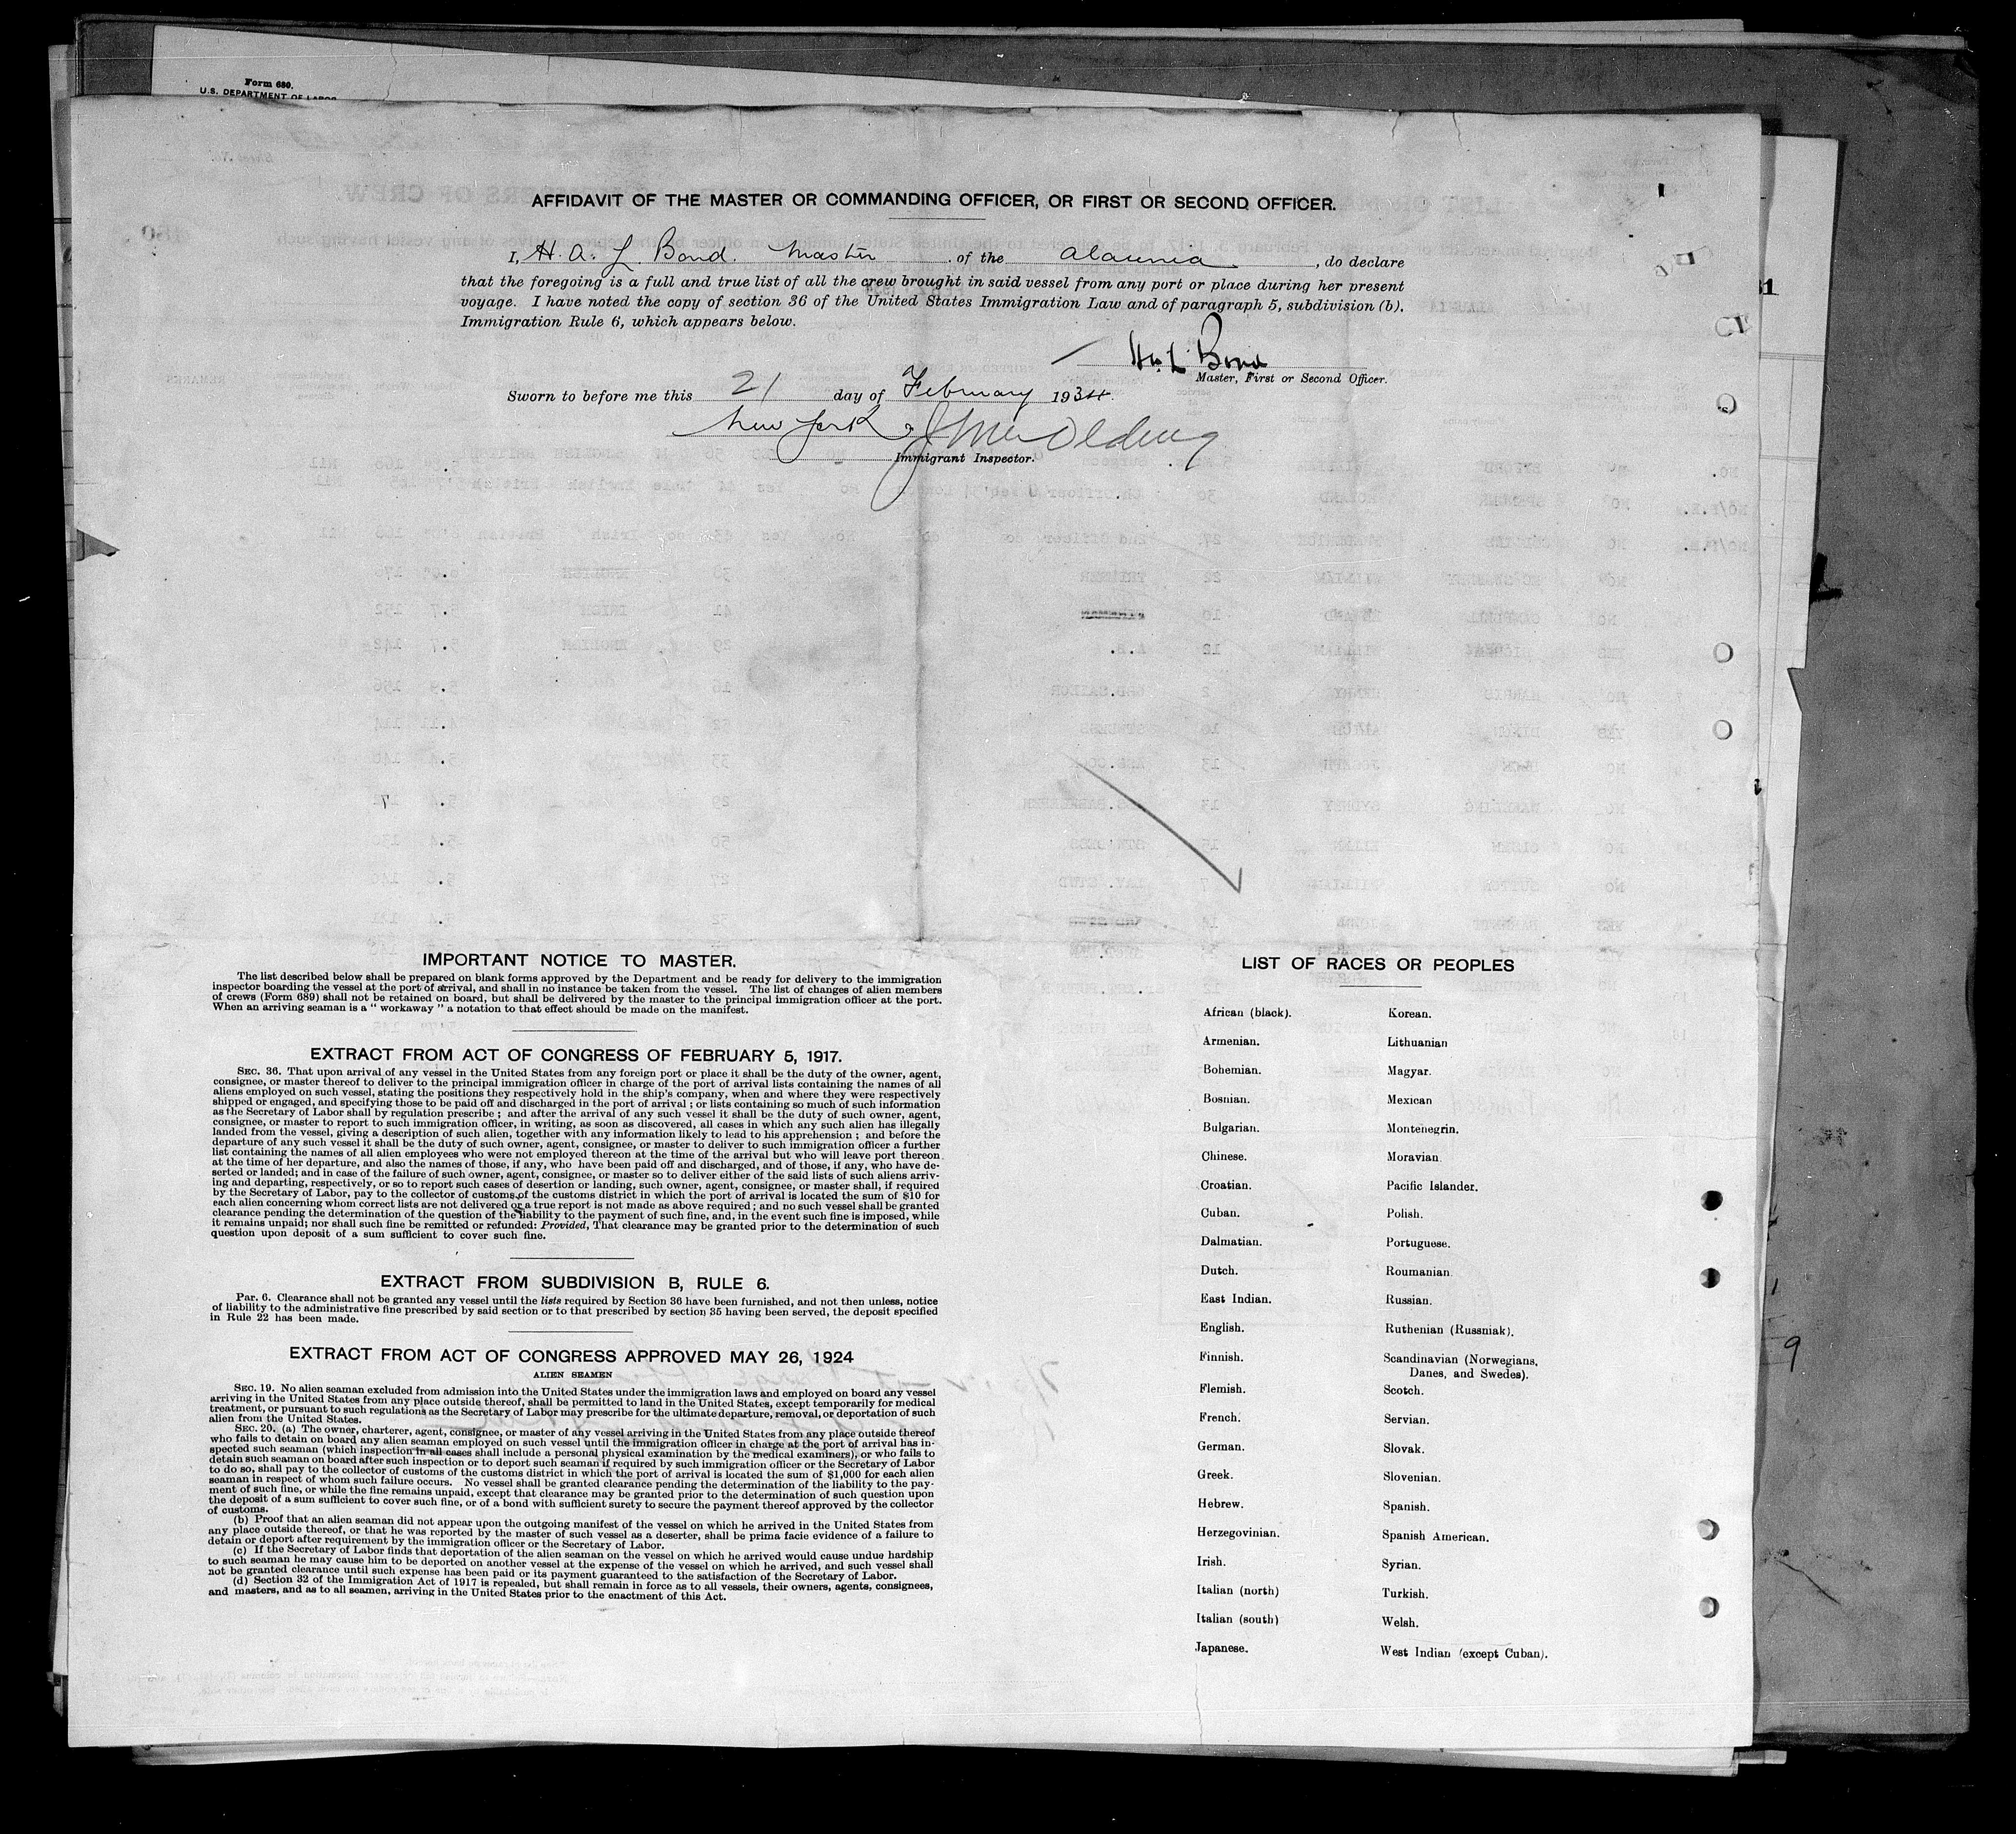 Form 680.
U.S. DEPARTMENT OF LABOR
AFFIDAVIT OF THE MASTER OR COMMANDING OFFICER, OR FIRST OR SECOND OFFICER.
I, H. A. L. Bond. Master of the Alaunia, do declare
that the foregoing is a full and true list of all the crew brought in said vessel from any port or place during her present
voyage. I have noted the copy of section 36 of the United States Immigration Law and of paragraph 5, subdivision (b).
Immigration Rule 6, which appears below.
Bond
Master, First or Second Officer.
Sworn to before me this 21 day of February 1934.
New York
Immigrant Inspector.
IMPORTANT NOTICE TO MASTER.
The list described below shall be prepared on blank forms approved by the Department and be ready for delivery to the immigration
inspector boarding the vessel at the port of arrival, and shall in no instance be taken from the vessel. The list of changes of alien members
of crews (Form 689) shall not be retained on board, but shall be delivered by the master to the principal immigration officer at the port.
When an arriving seaman is a " workaway " a notation to that effect should be made on the manifest.
EXTRACT FROM ACT OF CONGRESS OF FEBRUARY 5, 1917.
SEC. 36. That upon arrival of any vessel in the United States from any foreign port or place it shall be the duty of the owner, agent,
consignee, or master thereof to deliver to the principal immigration officer in charge of the port of arrival lists containing the names of all
aliens employed on such vessel, stating the positions they respectively hold in the ship's company, when and where they were respectively
shipped or engaged, and specifying those to be paid off and discharged in the port of arrival ; or lists containing so much of such information
as the Secretary of Labor shall by regulation prescribe ; and after the arrival of any such vessel it shall be the duty of such owner, agent,
consignee, or master to report to such immigration officer, in writing, as soon as discovered, all cases in which any such alien has illegally
landed from the vessel, giving a description of such alien, together with any information likely to lead to his apprehension ; and before the
departure of any such vessel it shall be the duty of such owner, agent, consignee, or master to deliver to such immigration officer a further
list containing the names of all alien employees who were not employed thereon at the time of the arrival but who will leave port thereon
at the time of her departure, and also the names of those, if any, who have been paid off and discharged, and of those, if any, who have de-
serted or landed; and in case of the failure of such owner, agent, consignee, or master so to deliver either of the said lists of such aliens arriv-
ing and departing, respectively, or so to report such cases of desertion or landing, such owner, agent, consignee, or master shall, if required
by the Secretary of Labor, pay to the collector of customs of the customs district in which the port of arrival is located the sum of $10 for
each alien concerning whom correct lists are not delivered or a true report is not made as above required ; and no such vessel shall be granted
clearance pending the determination of the question of the liability to the payment of such fine, and, in the event such fine is imposed, while
it remains unpaid; nor shall such fine be remitted or refunded: Provided, That clearance may be granted prior to the determination of such
question upon deposit of a sum sufficient to cover such fine.
EXTRACT FROM SUBDIVISION B, RULE 6.
Par. 6. Clearance shall not be granted any vessel until the lists required by Section 36 have been furnished, and not then unless, notice
of liability to the administrative fine prescribed by said section or to that prescribed by section 35 having been served, the deposit specified
in Rule 22 has been made.
EXTRACT FROM ACT OF CONGRESS APPROVED MAY 26, 1924
ALIEN SEAMEN
SEC. 19. No alien seaman excluded from admission into the United States under the immigration laws and employed on board any vessel
arriving in the United States from any place outside thereof, shall be permitted to land in the United States, except temporarily for medical
treatment, or pursuant to such regulations as the Secretary of Labor may prescribe for the ultimate departure, removal, or deportation of such
alien from the United States.
SEC. 20. (a) The owner, charterer, agent, consignee, or master of any vessel arriving in the United States from any place outside thereof
who fails to detain on board any alien seaman employed on such vessel until the immigration officer in charge at the port of arrival has in-
spected such seaman (which inspection in all cases shall include a personal physical examination by the medical examiners), or who fails to
detain such seaman on board after such inspection or to deport such seaman if required by such immigration officer or the Secretary of Labor
to do so, shall pay to the collector of customs of the customs district in which the port of arrival is located the sum of $1,000 for each alien
seaman in respect of whom such failure occurs. No vessel shall be granted clearance pending the determination of the liability to the pay-
ment of such fine, or while the fine remains unpaid, except that clearance may be granted prior to the determination of such question upon
the deposit of a sum sufficient to cover such fine, or of a bond with sufficient surety to secure the payment thereof approved by the collector
of customs.
(b) Proof that an alien seaman did not appear upon the outgoing manifest of the vessel on which he arrived in the United States from
any place outside thereof, or that he was reported by the master of such vessel as a deserter, shall be prima facie evidence of a failure to
detain or deport after requirement by the immigration officer or the Secretary of Labor.
(c) If the Secretary of Labor finds that deportation of the alien seaman on the vessel on which he arrived would cause undue hardship
to such seaman he may cause him to be deported on another vessel at the expense of the vessel on which he arrived, and such vessel shall
not be granted clearance until such expense has been paid or its payment guaranteed to the satisfaction of the Secretary of Labor.
(d) Section 32 of the Immigration Act of 1917 is repealed, but shall remain in force as to all vessels, their owners, agents, consignees,
and masters, and as to all seamen, arriving in the United States prior to the enactment of this Act.
LIST OF RACES OR PEOPLES
African (black). Korean.
Armenian. Lithuanian
Bohemian. Magyar.
Bosnian. Mexican
Bulgarian. Montenegrin.
Chinese. Moravian
Croatian. Pacific Islander.
Cuban. Polish.
Dalmatian. Portuguese.
Dutch. Roumanian
East Indian. Russian.
English. Ruthenian (Russniak).
Finnish. Scandinavian (Norwegians,
Danes, and Swedes).
Flemish. Scotch.
French. Servian.
German. Slovak.
Greek. Slovenian.
Hebrew. Spanish.
Herzegovinian. Spanish American.
Irish. Syrian.
Italian (north) Turkish.
Italian (south) Welsh.
Japanese. West Indian (except Cuban).